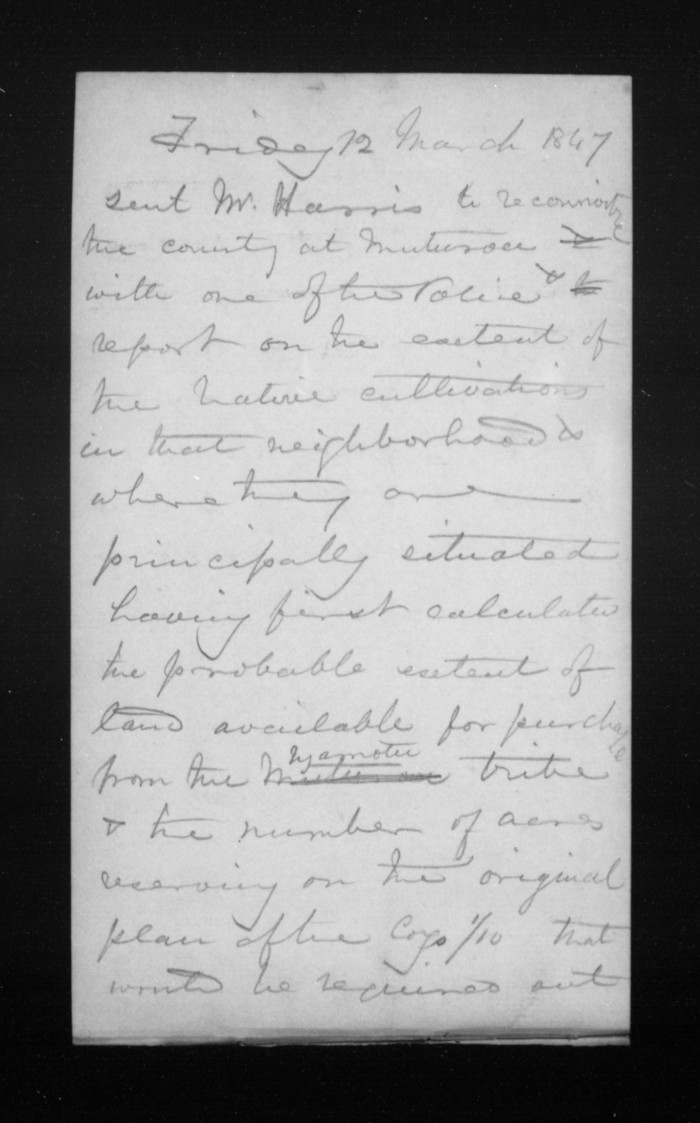 Friday 12 March 1847
sent Mr. Harris to reconnoitre
the county at Muturoa
with one of the Police &
report on the extent of
the Native cultivations
in that neighborhood &
where they are
principally situated
having first calculated
the probable extent of
land available for purchase
from the Ngamotu tribe
& the number of acres
reserving on the original
plan of the Coys 1/10 that
would be required out